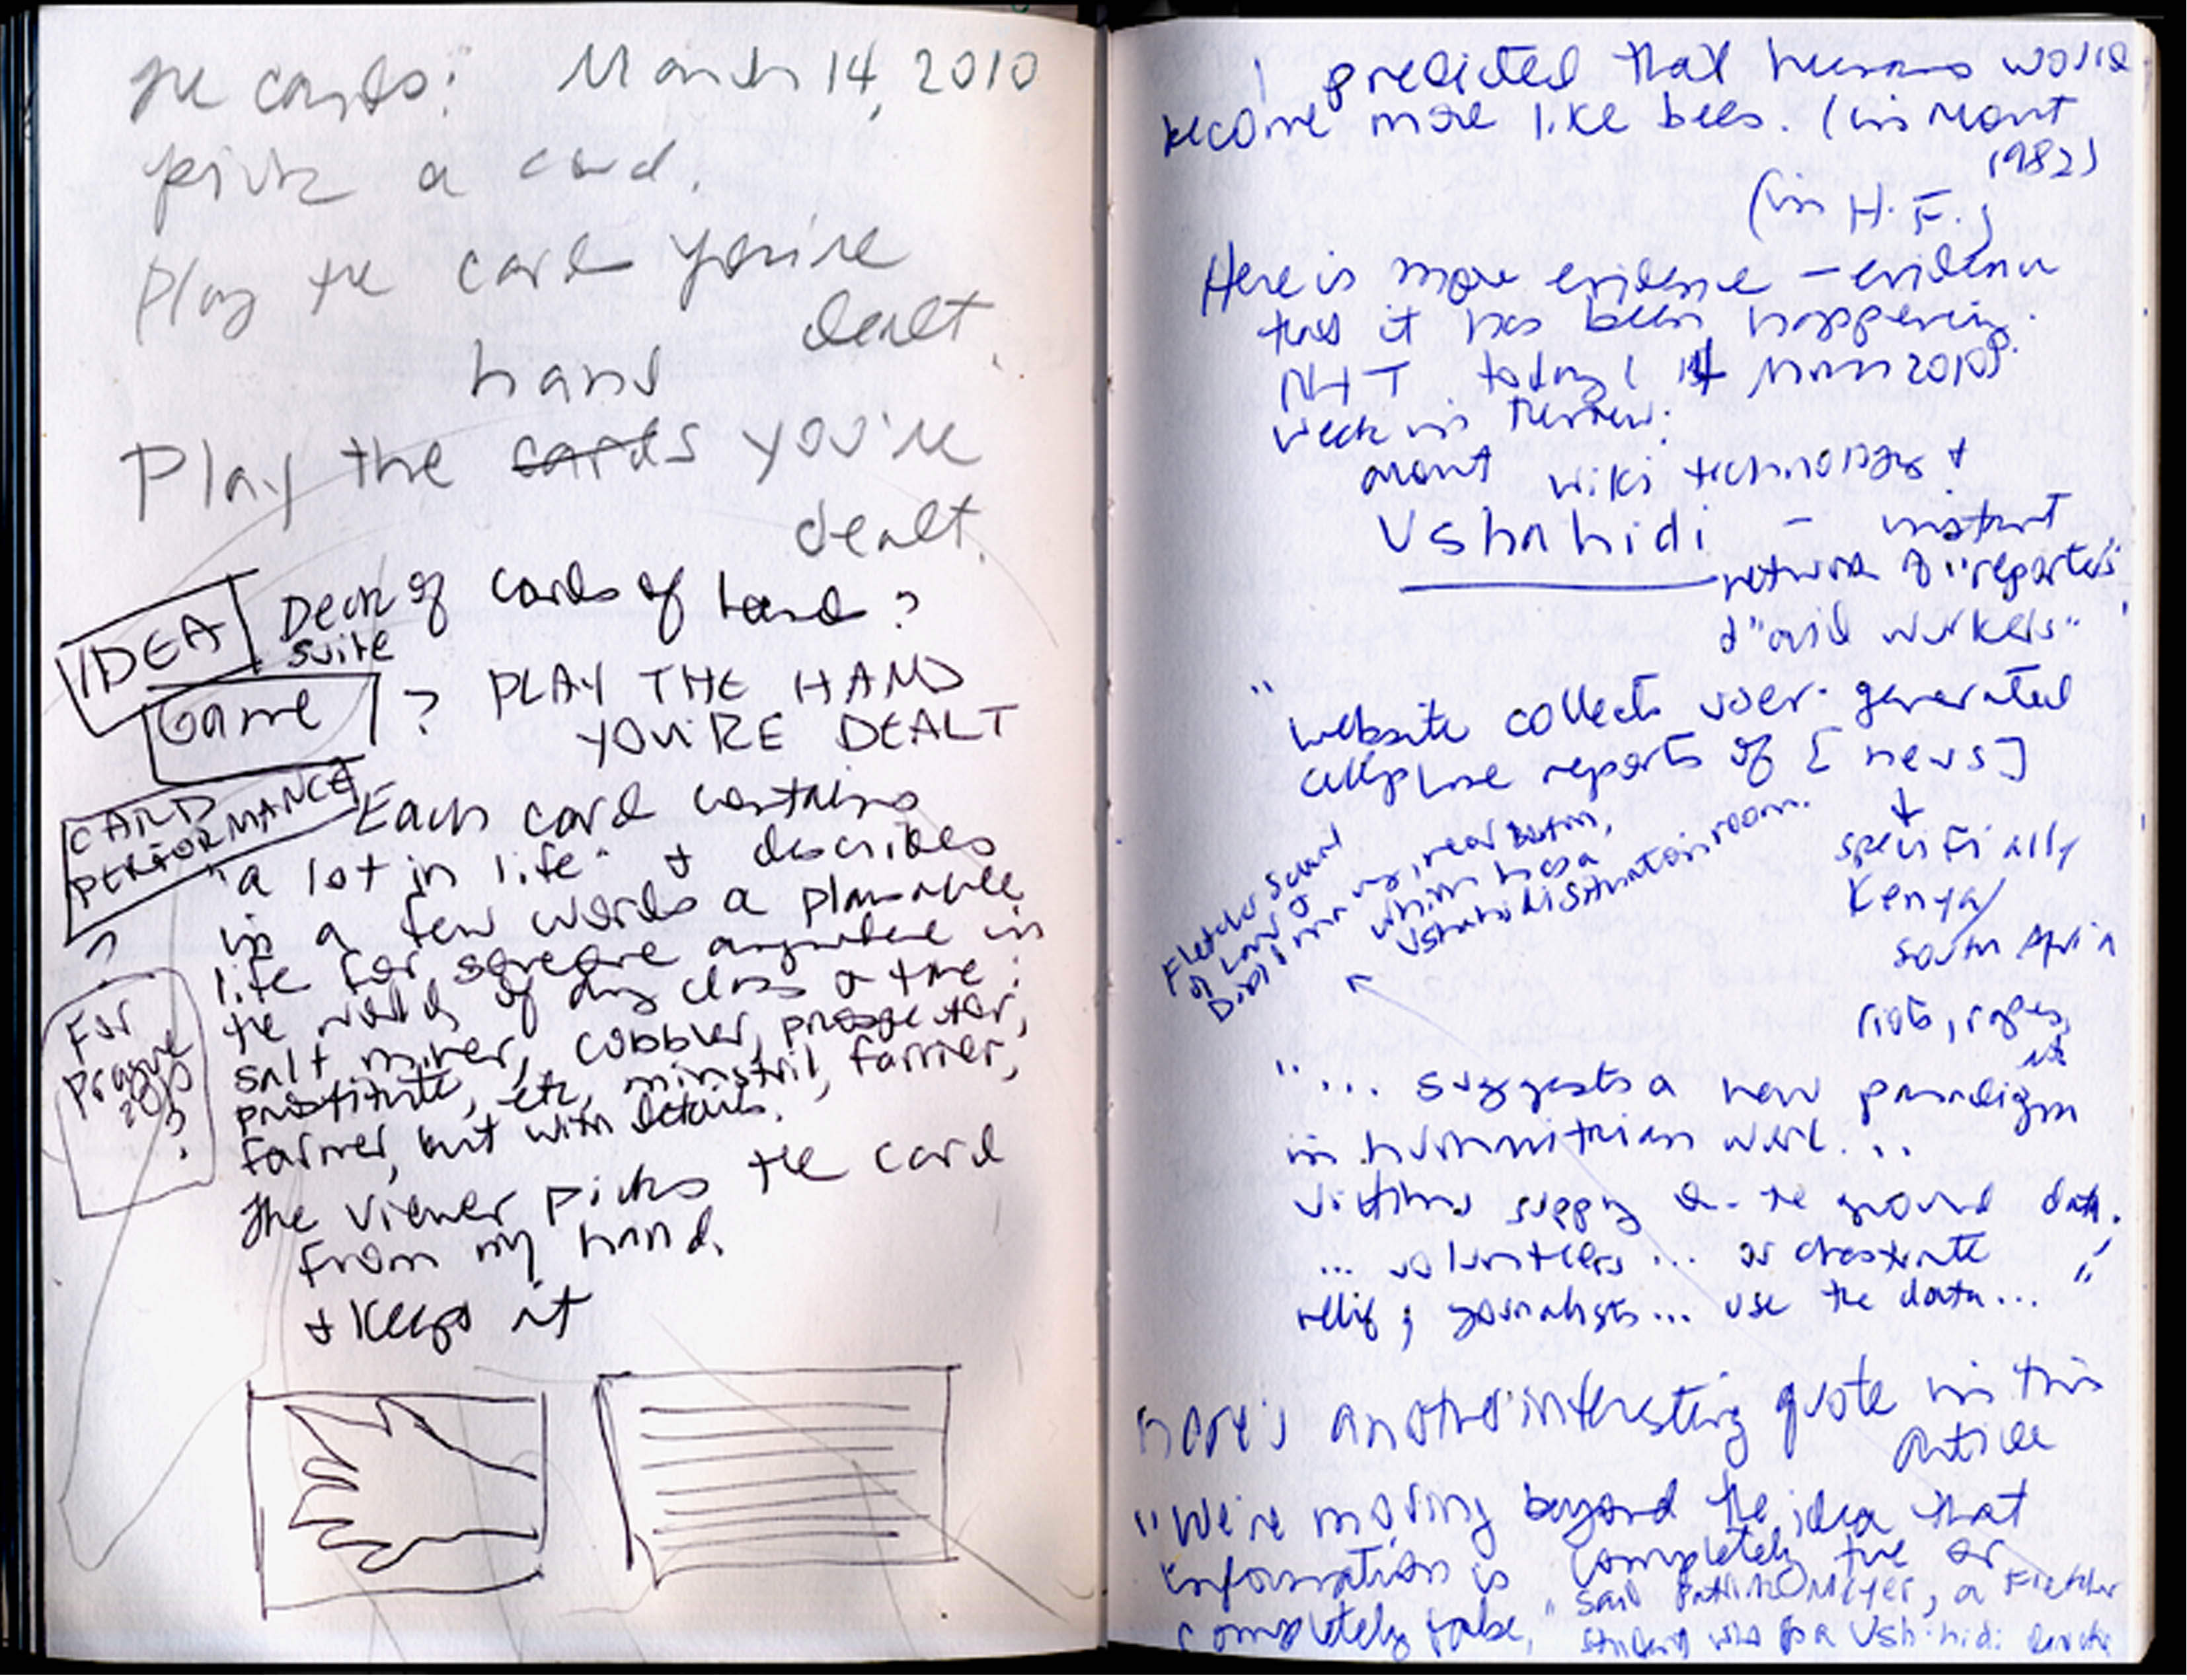 The cards: March 14, 2010
pick a card.
Play the card you're
dealt.
hand
Play the cards you're
dealt.
IDEA
Deck of cards of hand?
suite
Game
? PLAY THE HAND
YOU'RE DEALT
CARD
PERFORMANCE
Each card contains
"a lot in life" + describes
in a few words a plausible
life for someone anywhere in
the world of any class or time:
salt miner, cobbler, prospector,
prostitute, etc, minstril, farrier,
farmer, but with details.
For
Prague
2010
?
The viewer picks the card
from my hand.
+ keeps it
I predicted that humans would
become more like bees. (in
1982)
(in H.F.)
Here is more evidence – evidence
that it has been happening.
NYT today (14 March 2010)
Week in Review:
about wiki technology +
Ushahidi – instant
network of "reporters"
+ "aid workers"
"website collects user-generated
cellphone reports of [news]
+
specifically
Kenya/
South Africa
riots, rapes,
etc
Fletcher School
of Law &
Diplomacy, near Boston,
which has a
Ushahidi situation room.
"... suggests a new paradigm
in humanitarian work...
victims supply on-the ground data.
... volunteers... orchestrate
relief; journalists... use the data..."
here's another interesting quote in this
article
"We're moving beyond the idea that
information is completely true or
completely false," said Patrick Meier, a Fletcher
student who is a Ushahidi